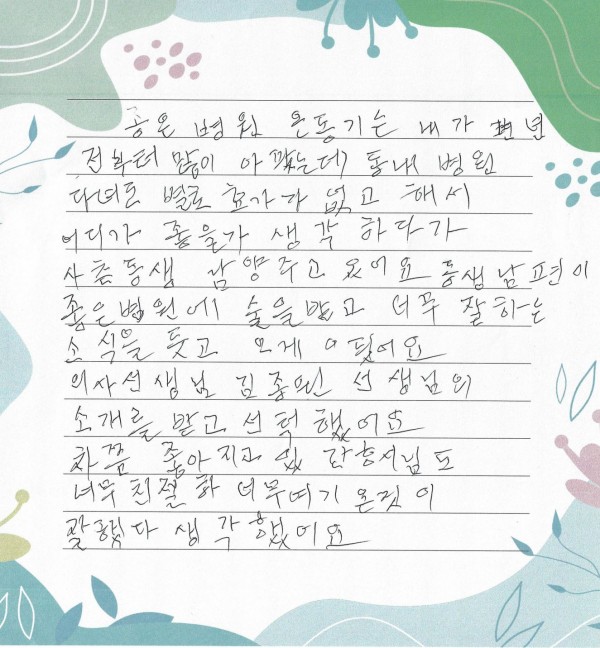 좋은 병원 온동기는 내가 년
전부터 많이 아팠는데 동내 병원
다녀도 별로 효가가 없고 해서
어디가 좋을가 생각 하다가
사촌동생 남양주고 있어요 동생남편이
좋은병원에 술을받고 너무 잘하는
소식을 듯고 오게 되
의사선생님 김종민 선생님의
소개를 받고 선턱 했어요
차쯤 좋아지고 있 간호서님도
너무 친절하 너무여기 온것이
잘했다 생각했어요